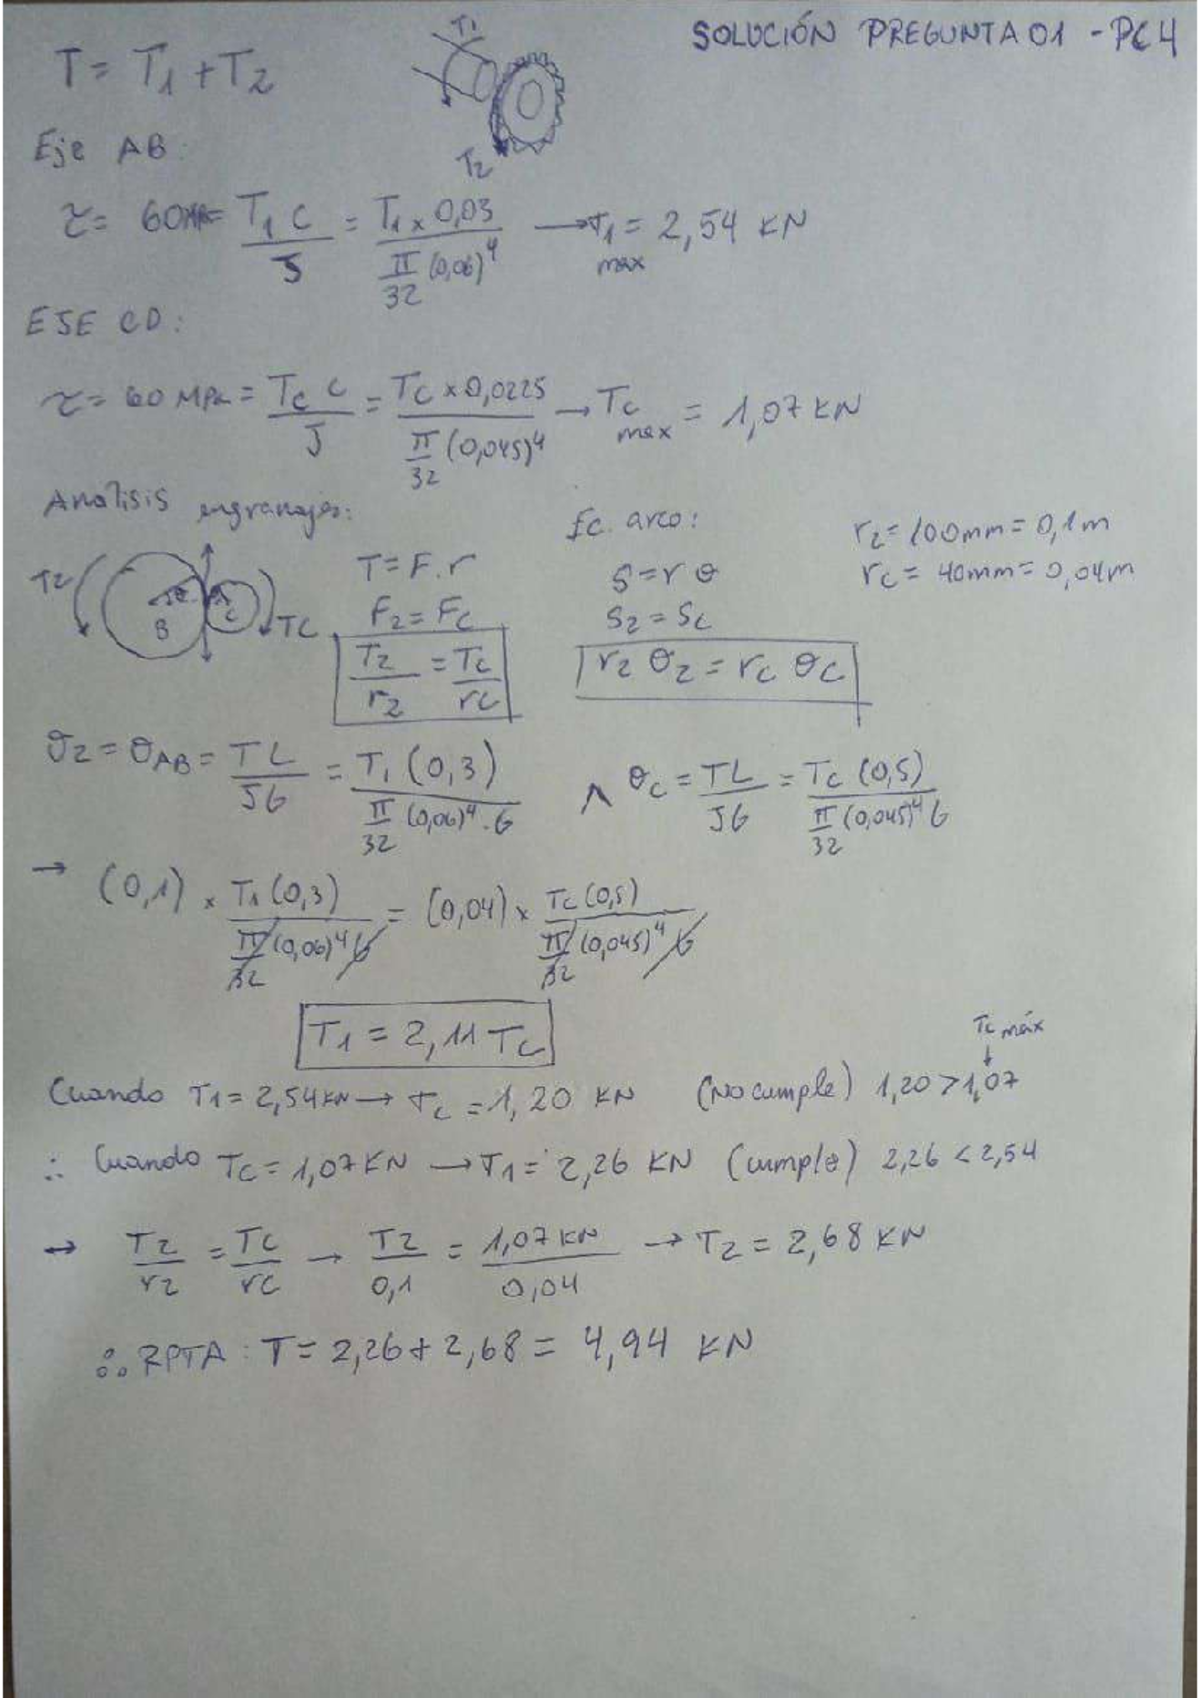 SOLUCIÓN PREGUNTA 01 - PC4
T = T1 + T2
T1
T2
Eje AB:
τ = 60MPa = T1 C / J = T1 × 0,03 / π/32 (0,06)^4 → T1 max = 2,54 KN
EJE CD:
τ = 60 MPa = Tc C / J = Tc × 0,0225 / π/32 (0,045)^4 → Tc max = 1,07 KN
Análisis engranajes:
T2 B C Tc
T = F.r
F2 = Fc
T2 / r2 = Tc / rc
Ec. arco:
S = r θ
S2 = Sc
r2 θ2 = rc θc
r2 = 100mm = 0,1m
rc = 40mm = 0,04m
θ2 = θAB = TL / JG = T1 (0,3) / π/32 (0,06)^4 . G ∧ θc = TL / JG = Tc (0,5) / π/32 (0,045)^4 G
→ (0,1) × T1 (0,3) / π/32 (0,06)^4 G = (0,04) × Tc (0,5) / π/32 (0,045)^4 G
T1 = 2,11 Tc
Tc máx
↓
Cuando T1 = 2,54 KN → Tc = 1,20 KN (No cumple) 1,20 > 1,07
∴ Cuando Tc = 1,07 KN → T1 = 2,26 KN (cumple) 2,26 < 2,54
→ T2 / r2 = Tc / rc → T2 / 0,1 = 1,07 KN / 0,04 → T2 = 2,68 KN
∴ RPTA: T = 2,26 + 2,68 = 4,94 KN